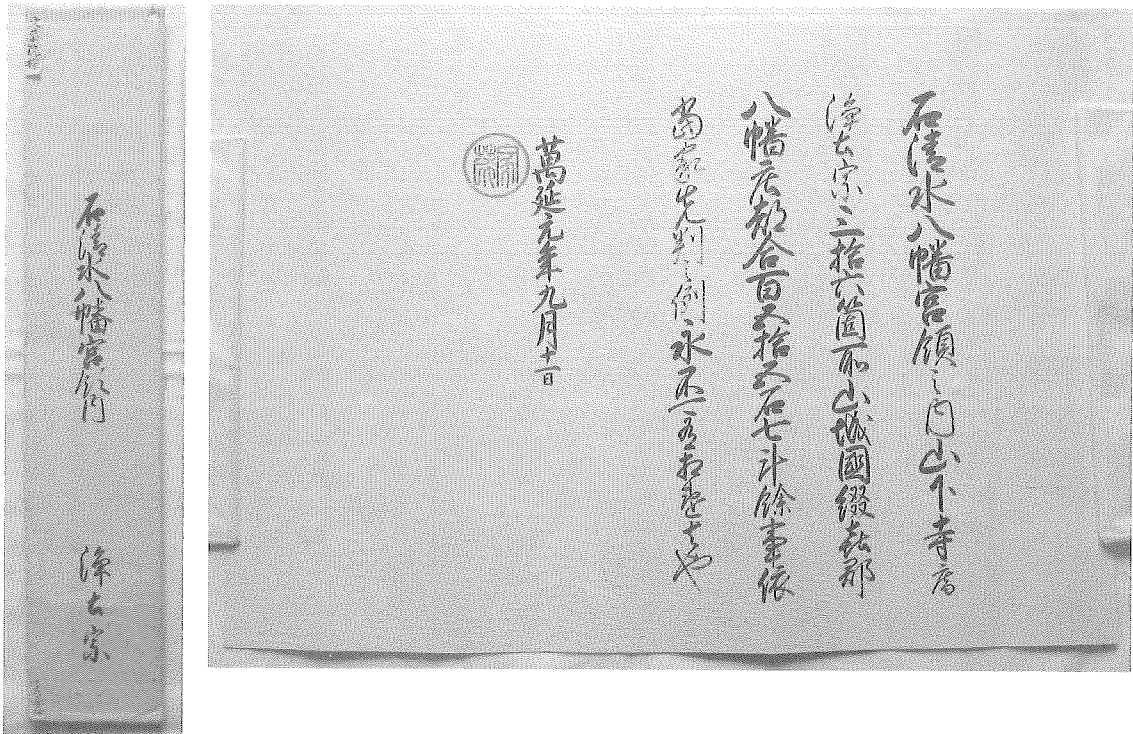 石清水八幡宮領之内山下寺庵
浄土宗三拾六箇所山城國綴喜郡
八幡庄都合百五拾五石七斗餘事依
當家先判之例永不可有相違者也
萬延元年九月十一日
石清水八幡宮領内
浄土宗